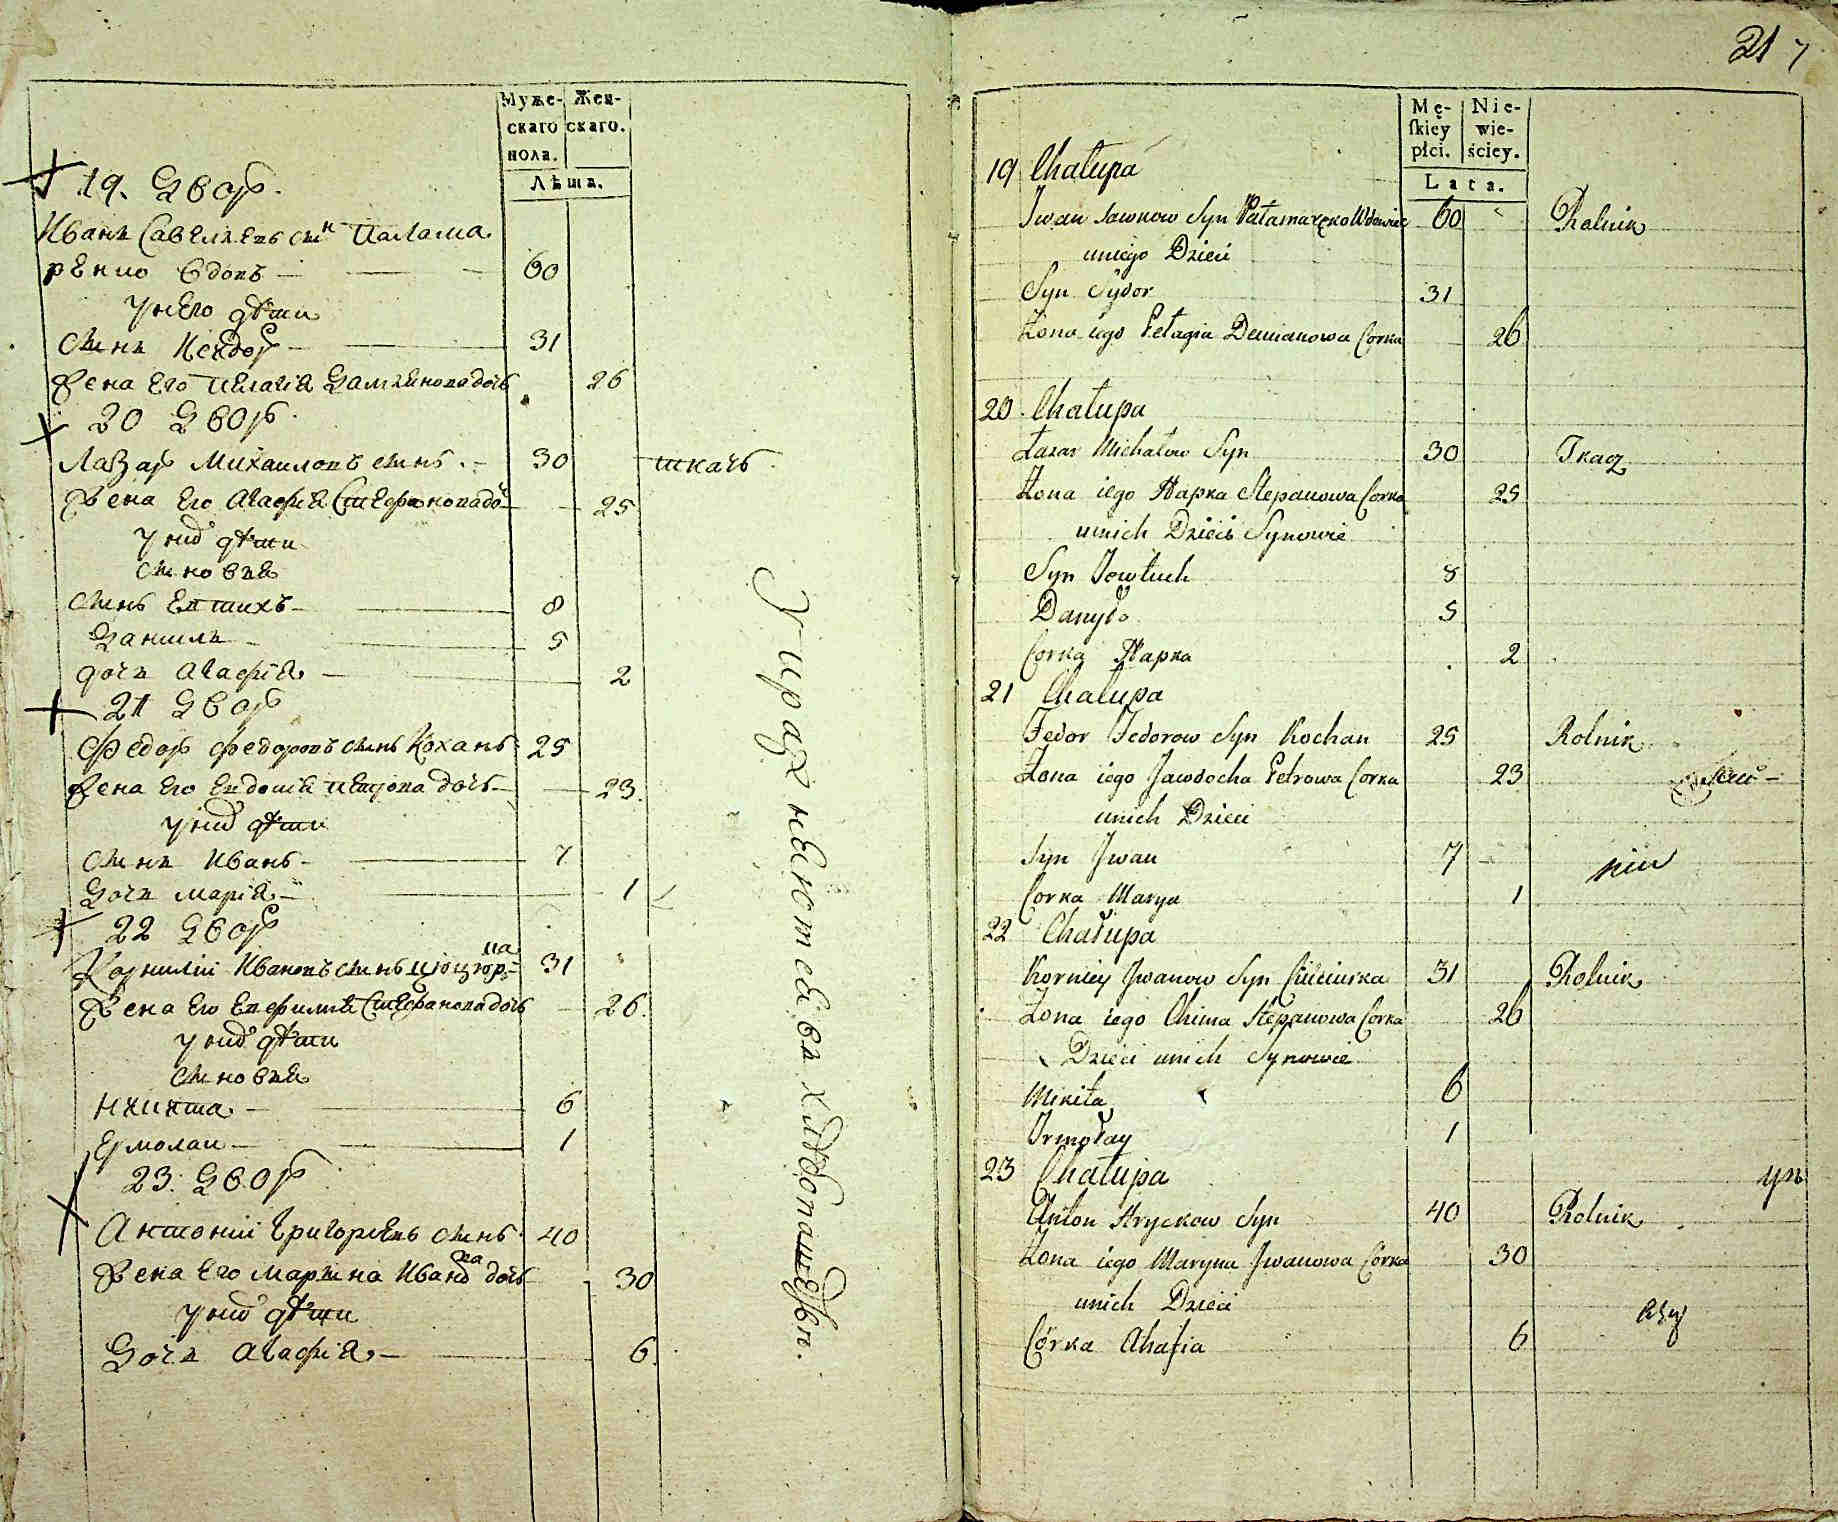 Муже-
скаго
пола.
Жен-
скаго.
Лѣта.
19. Двор
Иванъ Савелиевъ снъ Палама
ренко вдовъ 60
у него дѣти
снъ Исидор 31
Жена его Пелагия Дамиянова дочъ 26
20 Двор
Лазар Михаиловъ снъ 30 ткачъ
Жена его Агафия Стефанова до 25
у них дѣти
сновя
снъ Евтихъ 8
Данилъ 5
дочь Агафия 2
21 Двор
Федор Федоровъ снъ Кохань 25
Жена его Евдокия Петрова дочъ 23
у них дѣти
снъ Иванъ 7
Дочь Мария 1
22 Двор
Корнилий Ивановъ снъ 31
Жена его Евфимия Стефанова дочъ 26
у них дѣти
сновя
Никита 6
Ермолаи 1
23. Двор
Антоний Григориевъ снъ 40
Жена его Марина Иванова дочъ 30
у них дѣти
Дочь Агафия 6
Упражняются въ хлѣбопашествѣ.
21 7
Mę-
ſkiéy
płci.
Nie-
wie-
ściey.
Lata.
19 Chałupa
Jwan Sawkow Syn Pałamaręko Wdowiec 60 Rolnik
uniego Dzieci
Syn Sydor 31
Żona iego Pełagia Demianowa Corka 26
20 Chałupa
Łazar Michałow Syn 30 Tkacz
Żona iego Hapka Stepanowa Corka 25
unich Dzieci Synowie
Syn Jowtuch 8
Danyło 5
Corka Hapka 2
21 Chałupa
Fedor Fedorow Syn Kochan 25 Rolnik
Żona iego Jawdocha Petrowa Corka 23
unich Dzieci
Syn Jwan 7
Corka Marya 1
22 Chałupa
Korniey Jwanow Syn Ciuciurka 31 Rolnik
Żona iego Chima Stepanowa Corka 26
Dzieci unich Synowie
Mikita 6
Jrmołay 1
23 Chałupa
Anton Hryckow Syn 40 Rolnik
Żona iego Maryna Jwanowa Córka 30
unich Dzieci
Córka Ahafia 6